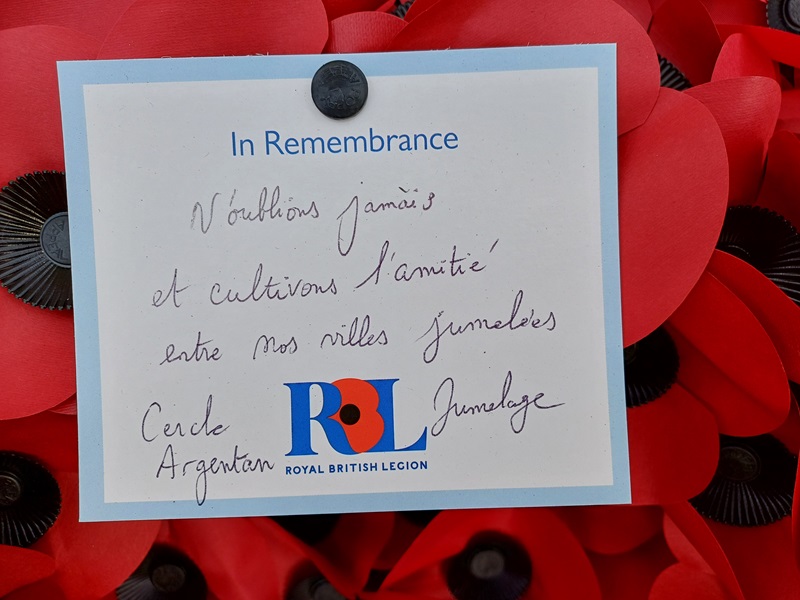 In Remembrance
N'oublions jamais
et cultivons l'amitié
entre nos villes jumelées
Cercle Jumelage
Argentan
RBL
ROYAL BRITISH LEGION